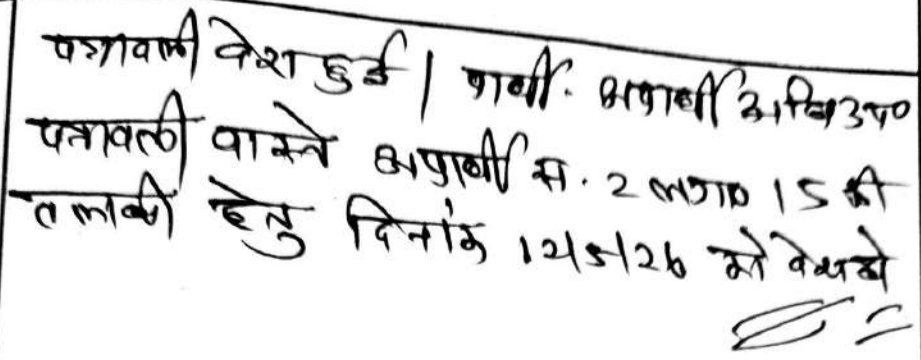 पत्रावली पेश हुई। प्रार्थी. अप्रार्थी अधि उप०
पत्रावली वास्ते अप्रार्थी स. 2 लगा० 15 की
तलबी हेतु दिनांक 12/5/26 को पेश हो